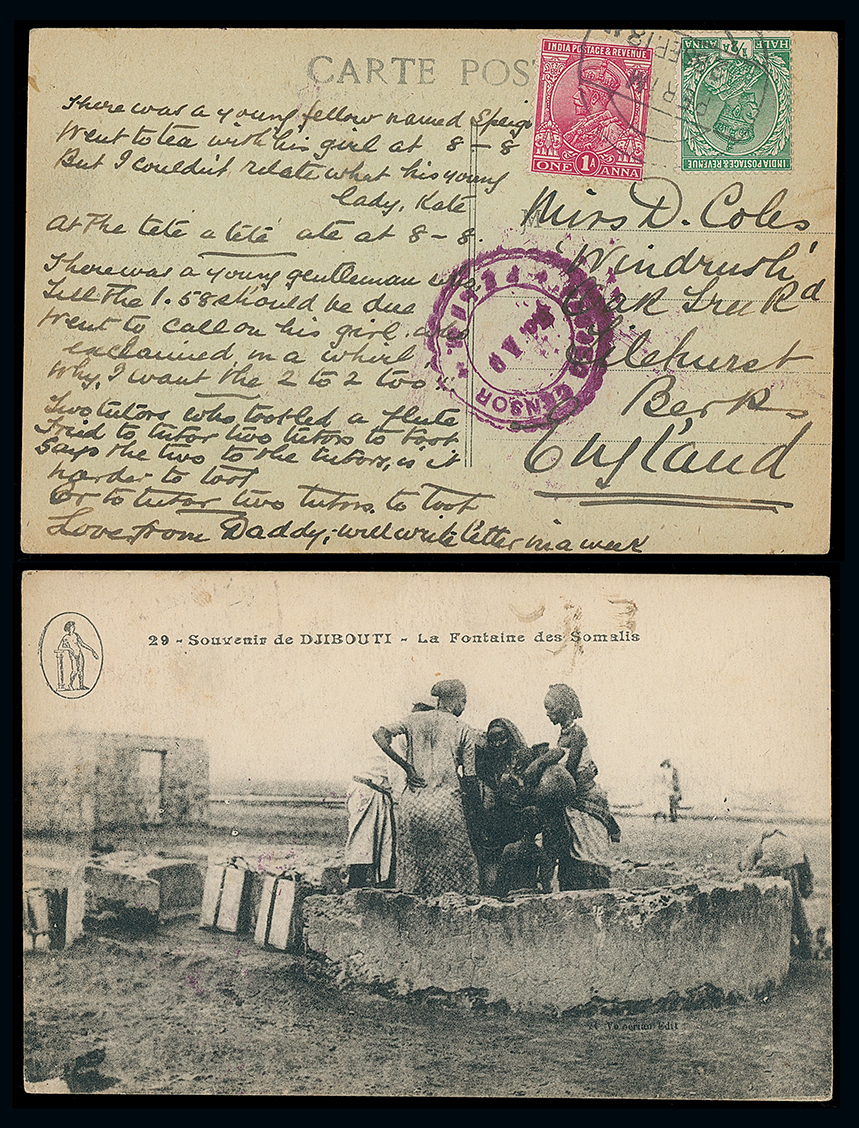 CARTE POS
There was a young fellow named Speigo
Went to tea with his girl at 8-8
But I couldn't relate what his young
lady, Kate
At the tete a tete ate at 8-8.
There was a young gentleman who
Till the 1.58 should be due
Went to call on his girl and
exclaimed, in a whirl
Why, I want the 2 to 2 too
Two tutors who tooted a flute
Tried to tutor two tutors to toot
Says the two to the tutors, is it
harder to toot
Or to tutor two tutors to toot
Love from Daddy, will write letter in a week
INDIA POSTAGE & REVENUE
ONE 1A ANNA
INDIA POSTAGE & REVENUE
HALF ½A ANNA
SEP. 18
Miss D. Coles
Windrush
Oak Tree Rd
Tilehurst
Berks
England
PASSED CENSOR
29 - Souvenir de DJIBOUTI - La Fontaine des Somalis
Edit